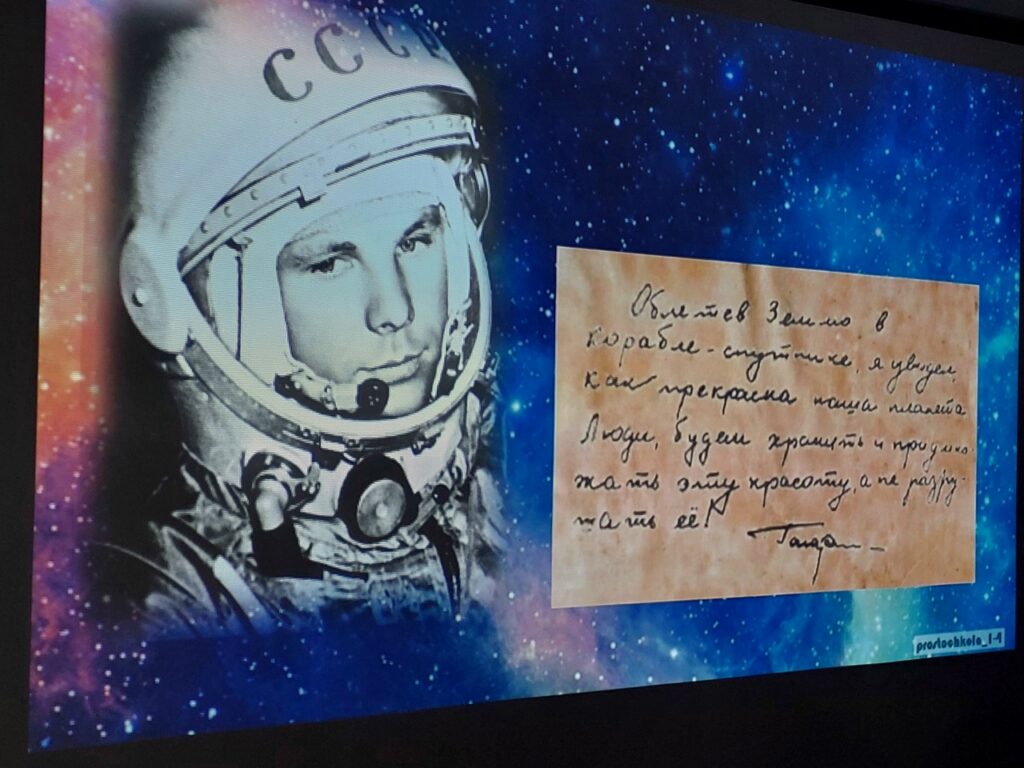 СССР
Облетев Землю в
корабле-спутнике, я увидел,
как прекрасна наша планета
Люди, будем хранить и приумно-
жать эту красоту, а не разру-
шать её!
Гагарин
prostoshkola_1-4